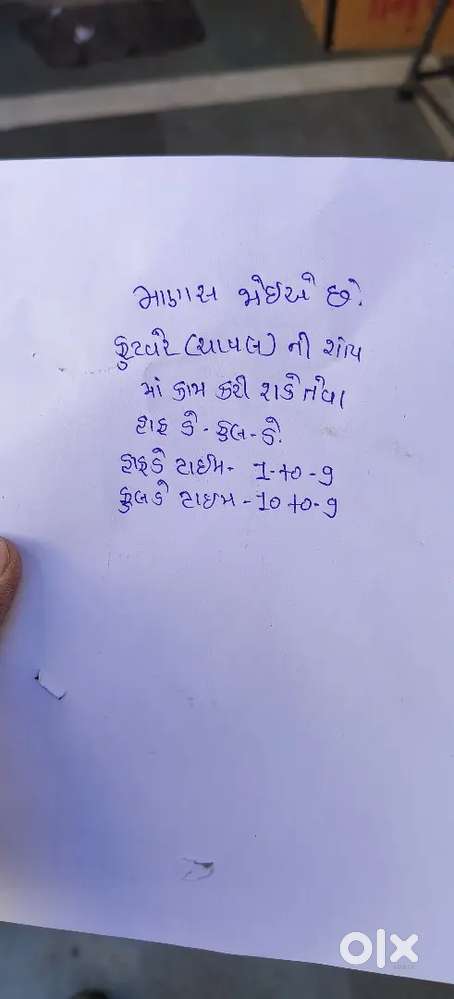 માણસ જોઈએ છે.
ફુટવેરે (ચાપલ) ની શોપ
માં કામ કરી શકે તેવા
હાફ ડે - ફુલ - ડે.
હાફડે ટાઈમ - 1 - to - 9
ફુલડે ટાઇમ - 10 to - 9
olx